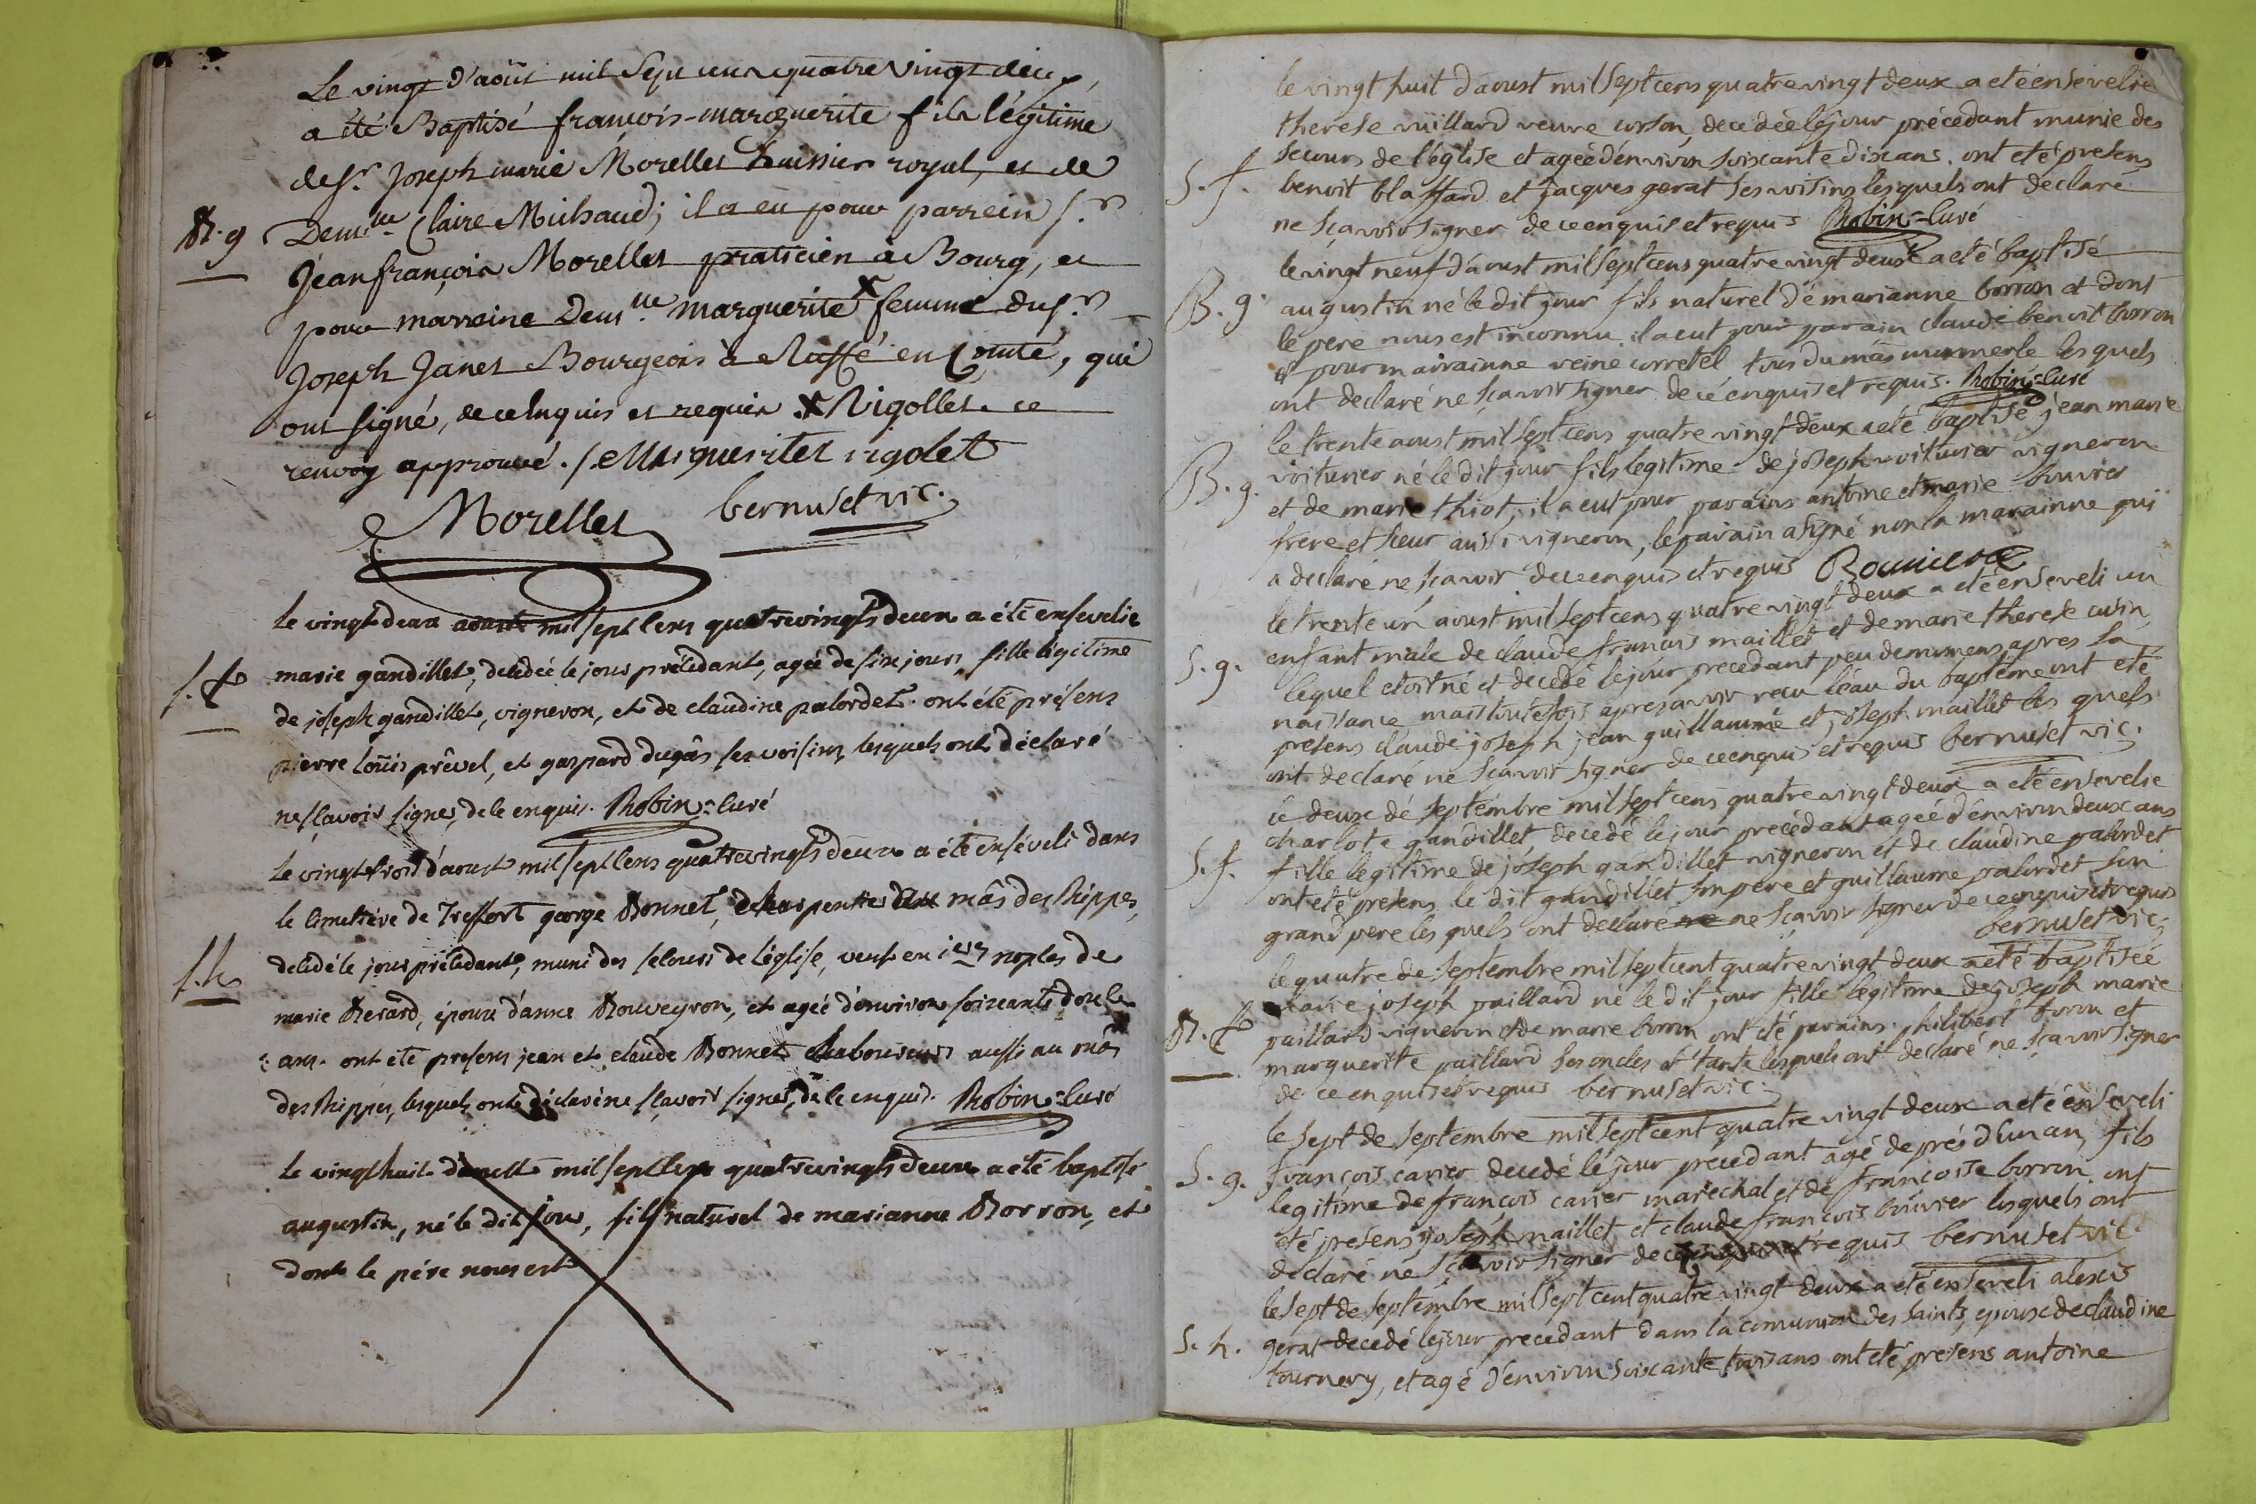 Le vingt d'août mil Sept cent quatre vingt deux,
a été Baptisé françois-marguerite fils légitime
de Sr. Joseph marie Morellet huissier royal, et de
B. g Demlle Claire Michaud; il a eu pour parrein Sr.
Jean françois Morellet praticien à Bourg, et
pour marraine Demlle marguerite X femme du Sr.
Joseph Janet Bourgeois à en Comté, qui
ont signé, de ce Enquis et requis. X Rigollet. ce
renvoy approuvé. / Marguerite rigolet
Morellet bernuset vic.
le vingt deux aoust mil sept cens quatrevingts deux a été ensevelie
S. f marie gandillet, décédée le jour précédant, agée de six jours, fille légitime
de joseph gandillet, vigneron, et de claudine palordet. ont été présens
pierre loüis prêvel, et gaspard dugâs ses voisins, lesquels ont déclaré
ne sçavoir signer, de ce enquis. Robin-curé
Le vingt trois d'aoust mil sept cens quatrevingts deux a été enséveli dans
le cimetière de Treffort george Bonnet, charpentier au mâs des Rippes,
S. h décédé le jour précédant, muni des secours de l'église, veuf en 1eres noples de
marie Berard, époux d'anne Bouveyron, et agé d'environ soixante douze
ans. ont été presens jean et claude Bonnet laboureurs aussi au mâs
des Rippes, lesquels ont déclaré ne sçavoir signer, de ce enquis. Robin-curé
Le vingt huit d'aoust mil sept cens quatrevingts deux a été baptisé
augustin, né le dit jour, fils naturel de marianne Borron, et
dont le père nous est
le vingt huit d'aoust mil sept cens quatre vingt deux a eté ensevelie
therese vuillard veuve corson, decedée le jour précedant munie des
secours de l'église et agée d'environ soixante dix ans. ont eté presens
S. f. benoit blaffard et jacques gerat ses voisins lesquels ont declaré
ne sçavoir signer de ce enquis et requis Robin-curé
le vingt neuf d'aoust mil sept cens quatre vingt deux a eté baptisé
B. g. augustin né le dit jour fils naturel de marianne borron et dont
le pere nous est inconnu il a eut pour parain claude benoit borron
et pour mairainne reine corretel tous du mas lesquels
ont declaré ne sçavoir signer de ce enquis et requis. Robin-curé
le trente aoust mil sept cens quatre vingt deux a eté baptisé jean marie
B. g. voiturier né le dit jour fils legitime de joseph voiturier vigneron
et de marie thiot; il a eut pour parains antoine et marie bouvier
frere et sœur aussi vigneron, le parain a signé non la marainne qui
a declaré ne sçavoir de ce enquis et requis Bouvier
le trente un aoust mil sept cens quatre vingt deux a eté enseveli un
S. g. enfant male de claude francois maillet et de marie therese cusin,
lequel etoit né et decedé le jour precedant peu de momens apres sa
naissance mais toutefois apres avoir recu l'eau du baptême ont eté
presens claude joseph jean guillaumé et joseph maillet les quels
ont declaré ne sçavoir signer de ce enquis et requis bernuset vic.
le deux de septembre mil sept cens quatre vingt deux a eté ensevelie
charlote gandillet decedé le jour precédant agée d'environ deux ans
S. f. fille legitime de joseph gandillet vigneron et de claudine palordet
ont eté presens le dit gandillet son pere et guillaume palordet son
grand pere les quels ont declaré ne ne sçavoir signer de ce enquis et requis
bernuset vic.
le quatre de septembre mil sept cent quatre vingt deux a eté baptisée
marie joseph paillard né le dit jour fille légitime de joseph marie
B. f paillard vigneron et de marie borron ont eté parains philibert boron et
marguerite paillard ses oncles et tante lesquels ont declaré ne sçavoir signer
de ce enquis et requis bernuset vic.
le sept de septembre mil sept cent quatre vingt deux a eté enseveli
S. g. françois carier decedé le jour precedant agé de prés d'un an, fils
legitime de françois carier marechal et de francoise borron ont
été presens joseph maillet et claude francois bouvier lesquels ont
declaré ne sçavoir signer de ce enquis et requis bernuset vic
le sept de septembre mil sept cent quatre vingt deux a eté enseveli alexis
S. h. gerat decedé le jour precedant dans la comunion des saints, epoux de claudine
tournery, et agé d'environ soixante trois ans ont eté presens antoine